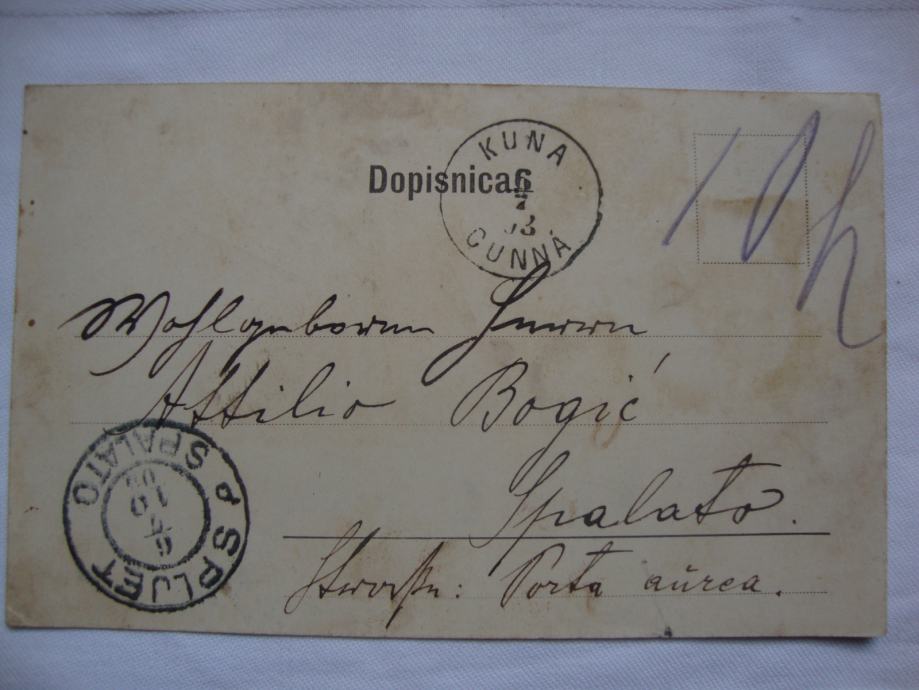 Dopisnica
KUNA
6
7
03
CUNNA
10 h
Wohlgeboren Herrn
Attilio Bogić
Spalato.
Strasse: Porta aurea.
SPLJET
SPALATO